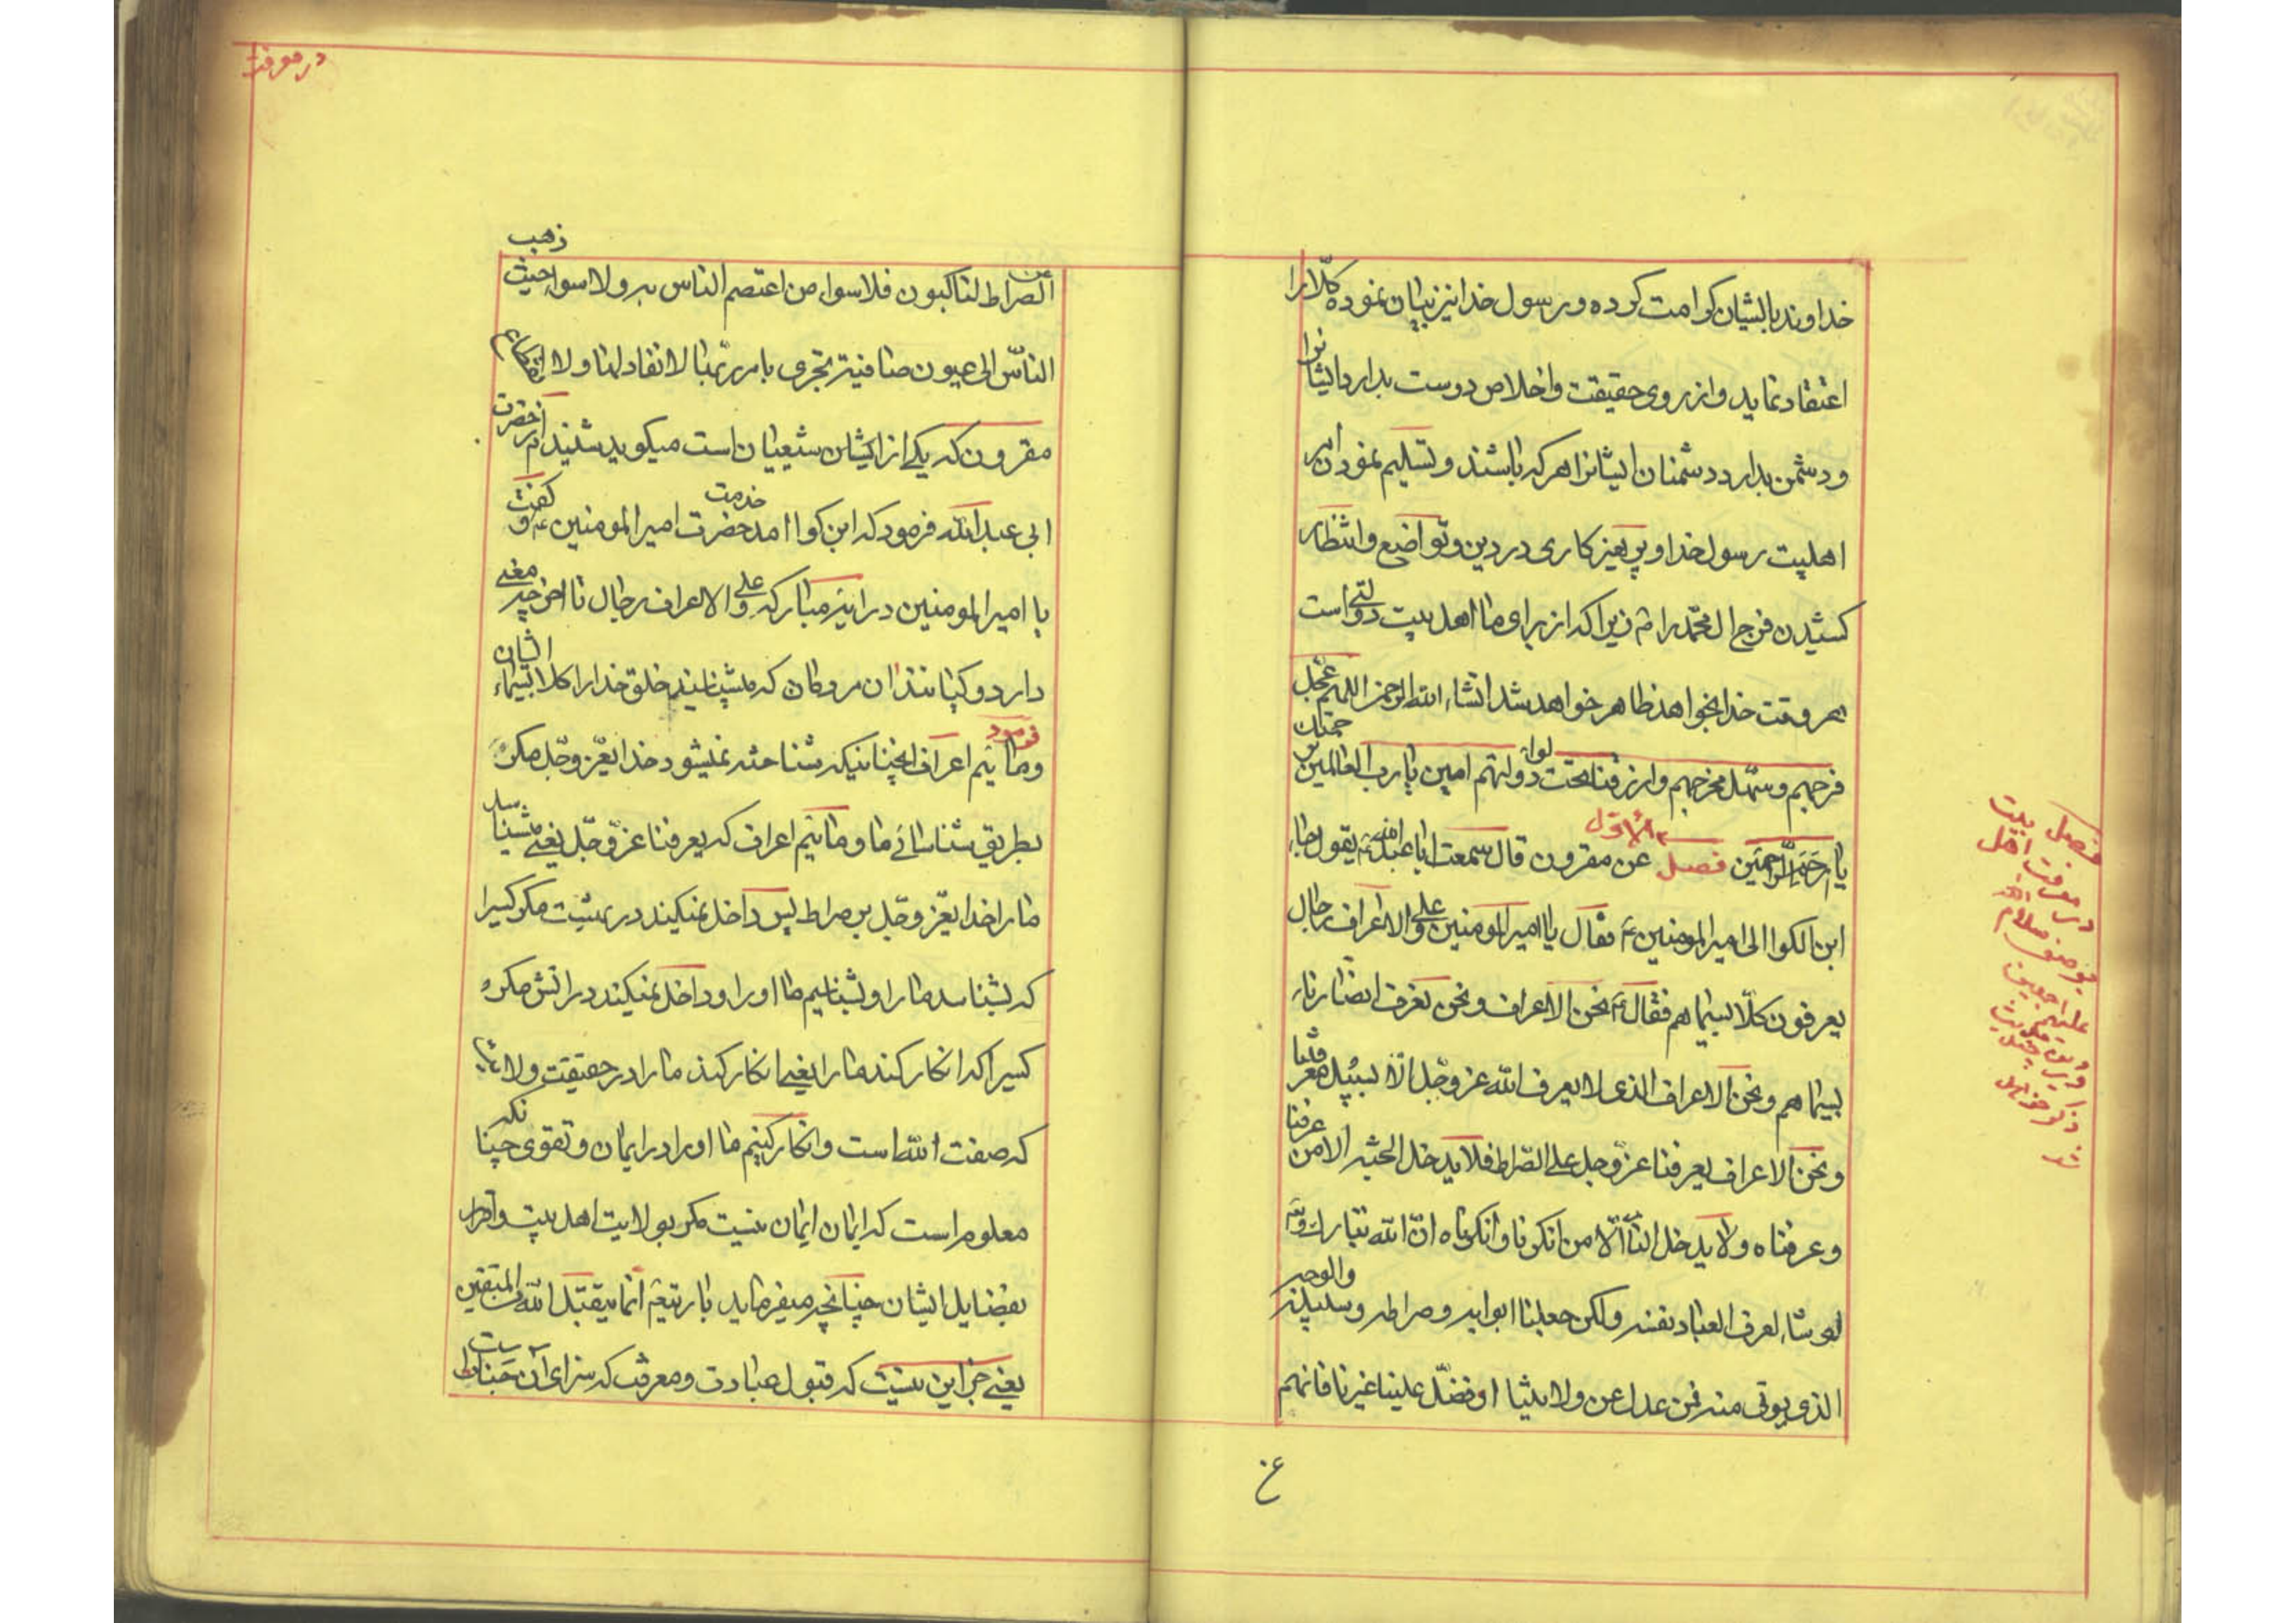 خداوند بایشان کرامت کرده و رسول خدا نیز بیان نموده کلا را
اعتقاد نماید و از روی حقیقت و اخلاص دوست بدارد ایشانرا
و دشمن بدارد دشمنان ایشانرا هر که باشند و تسلیم نمودن امر
اهلبیت رسول خدا و پرهیزکاری در دین و تواضع و انتظار
کشیدن فرج ال محمد را زیرا که از برای ما اهل بیت دولتی است
هر وقت خدا بخواهد ظاهر خواهد شد انشاء الله الرحمن اللهم عجل
فرجهم و سهل مخرجهم و ارزقنا تحت لواء دولتهم امین یا رب العالمین بحرمتک
یا ارحم الراحمین فصل الاول عن مقرون قال سمعت ابا عبد الله ع یقول جاء
ابن الکوا الی امیر المومنین ع فقال یا امیر المومنین و علی الاعراف رجال
یعرفون کلا بسیماهم فقال ع نحن الاعراف و نحن نعرف انصارنا
بسیماهم و نحن الاعراف الذی لا یعرف الله عز و جل الا بسبیل معرفتنا
و نحن الاعراف یعرفنا عز و جل علی الصراط فلا یدخل الجنه الا من عرفنا
و عرفناه و لا یدخل النار الا من انکرنا و انکرناه ان الله تبارک و تع
لو شاء لعرف العباد نفسه ولکن جعلنا ابوابه و صراطه و سبیله والوجه
الذی یوتی منه فمن عدل عن ولایتنا او فضل علینا غیرنا فانهم
فصل
در معرفت اهل بیت
علیهم اجمعین
در معرفت
عن الصراط لناکبون فلا سواء من اعتصم الناس به و لا سواء حیث ذهب
الناس الی عیون صافیة تجری بامر ربها لا نفاد لها و لا انقطاع
مقرون که یکی از ایشان شیعیان است میگوید شنیدم از حضرت
ابی عبد الله فرمود که ابن کوا امد خدمت حضرت امیر المومنین ع و گفت
یا امیر المومنین در ایه مبارکه و علی الاعراف رجال تا اخر چه معنی
دارد و کیانند ان مردمان که میشناسند خلق خدا را کلا بسیماء ایشان
فرمود و مائیم اعراف انچنانیکه شناخته نمیشود خدایعز و جل مکر
بطریق شناسائی ما و مائیم اعراف که یعرفنا عز و جل یعنی میشناسد
ما را خدایعز و جل بر صراط پس داخل نمیکند در بهشت مکر کسیرا
که بشناسد ما را و بشناسیم ما او را و داخل نمیکند در اتش مکر
کسیرا که انکار کند ما را یعنی انکار کند ما را در حقیقت ولا
که صفت الله است و انکار کنیم ما او را در ایمان و تقوی چنانکه
معلوم است که ایمان ایمان نیست مکر بولایت اهل بیت و اقرار
بفضایل ایشان چنانچه میفرماید باریتع انما یتقبل الله من المتقین
یعنی جز این نیست که قبول عبادت و معرفت که سزای ان